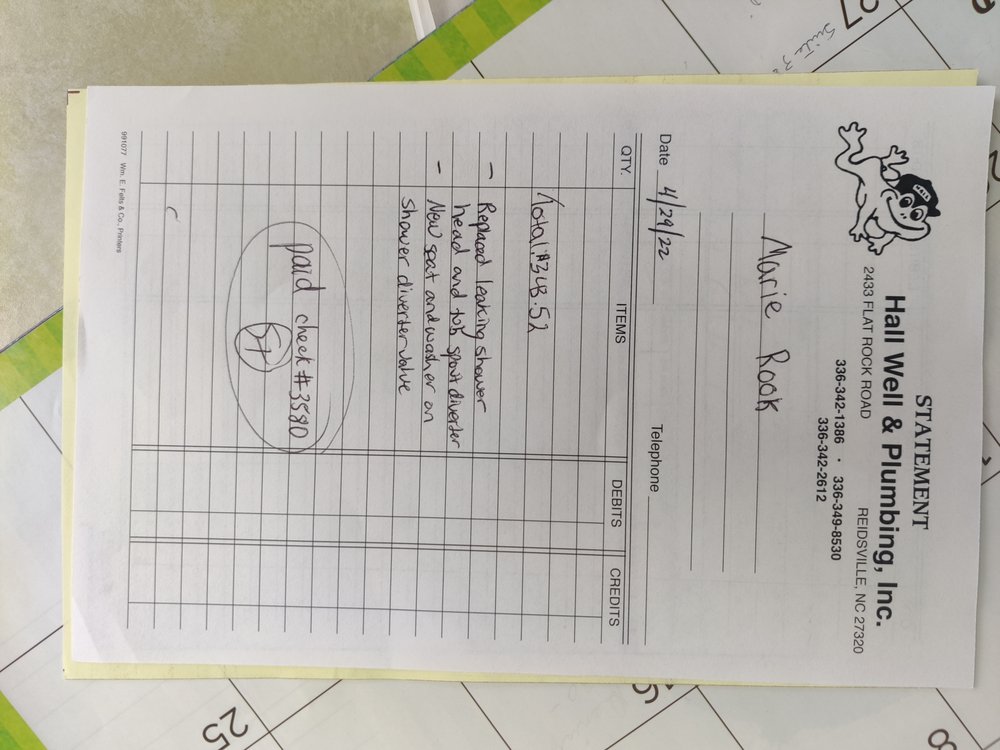 STATEMENT
Hall Well & Plumbing, Inc.
2433 FLAT ROCK ROAD REIDSVILLE, NC 27320
336-342-1386 • 336-349-8530
336-342-2612
Marie Rook
Date 4/29/22 Telephone
QTY. ITEMS DEBITS CREDITS
Total: $348.52
- Replaced leaking shower
head and tub spout diverter
- New spat and washer on
shower diverter valve
paid check # 3580
991077 Wm. E. Felts & Co., Printers
Suite
27
25